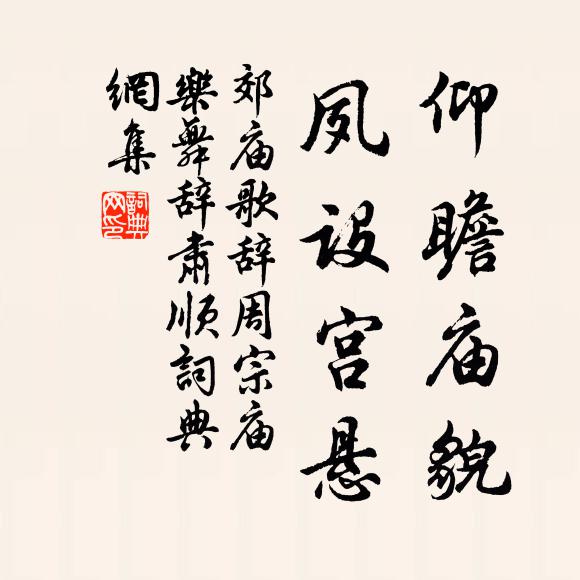 仰瞻庙貌
夙设宫悬
郊庙歌辞周宗庙
樂舞辞肃順詞典
網集
詞典
网印